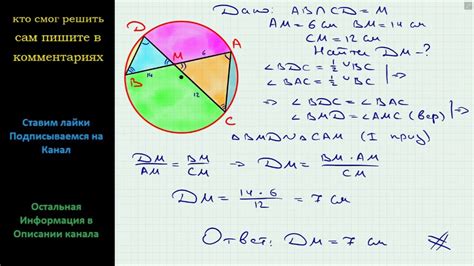 кто смог решить
сам пишите в
комментариях
Ставим лайки
Подписываемся на
Канал
Остальная
Информация в
Описании канала
D
A
M
6
B
14
12
C
Дано: AB∩CD=M
AM=6см BM=14см
CM=12см
Найти DM-?
∠BDC=½◡BC
∠BAC=½◡BC |⇒
⇒ ∠BDC=∠BAC
∠BMD=∠AMC (вер) |⇒
△BMD∾△CAM (I приз)
DM/AM = BM/CM ⇒ DM = BM·AM/CM
DM = 14·6/12 = 7 см
Ответ: DM=7 см